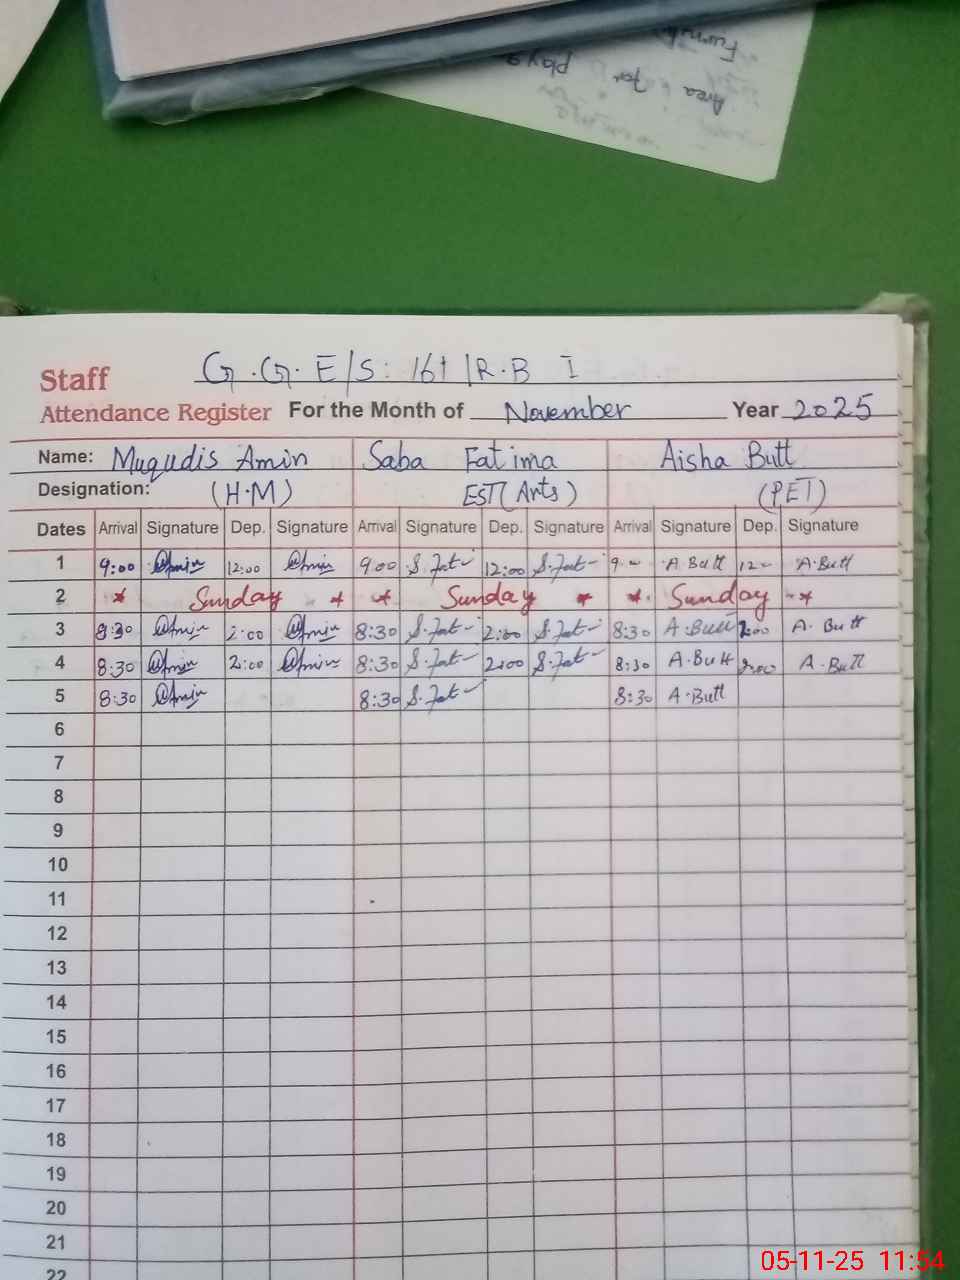 Furnit
Area for play
Staff G.G.E/S: 161/R.B I
Attendance Register For the Month of November Year 2025
Name: Muqudis Amin Saba Fatima Aisha Butt
Designation: (H.M) EST(Arts) (PET)
Dates Arrival Signature Dep. Signature Arrival Signature Dep. Signature Arrival Signature Dep. Signature
1 9:00 Amin 12:00 Amin 9:00 S.Fat 12:00 S.Fat 9 A.Butt 12 A.Butt
2 * Sunday * * Sunday * * Sunday *
3 8:30 Amin 2:00 Amin 8:30 S.Fat 2:00 S.Fat 8:30 A.Butt 2:00 A.Butt
4 8:30 Amin 2:00 Amin 8:30 S.Fat 2:00 S.Fat 8:30 A.Butt 2:00 A.Butt
5 8:30 Amin 8:30 S.Fat 8:30 A.Butt
6
7
8
9
10
11
12
13
14
15
16
17
18
19
20
21
22
05-11-25 11:54